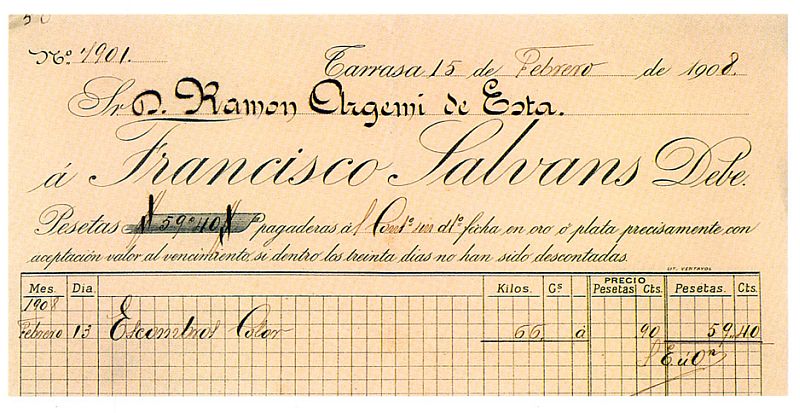 Nº 1901.
Tarrasa 15 de Febrero de 1908.
Sr. D. Ramon Argemi de Esta.
á Francisco Salvans Debe.
Pesetas 59'40 pagaderas á fecha, en oro ó plata precisamente, con
aceptación valor al vencimiento, si dentro los treinta dias no han sido descontadas.
LIT. VENTAYOL
Mes. Dia. Kilos. Gs PRECIO Pesetas Cts. Pesetas. Cts.
1908
Febrero 13 Escombros Color 66, á 90 59 40